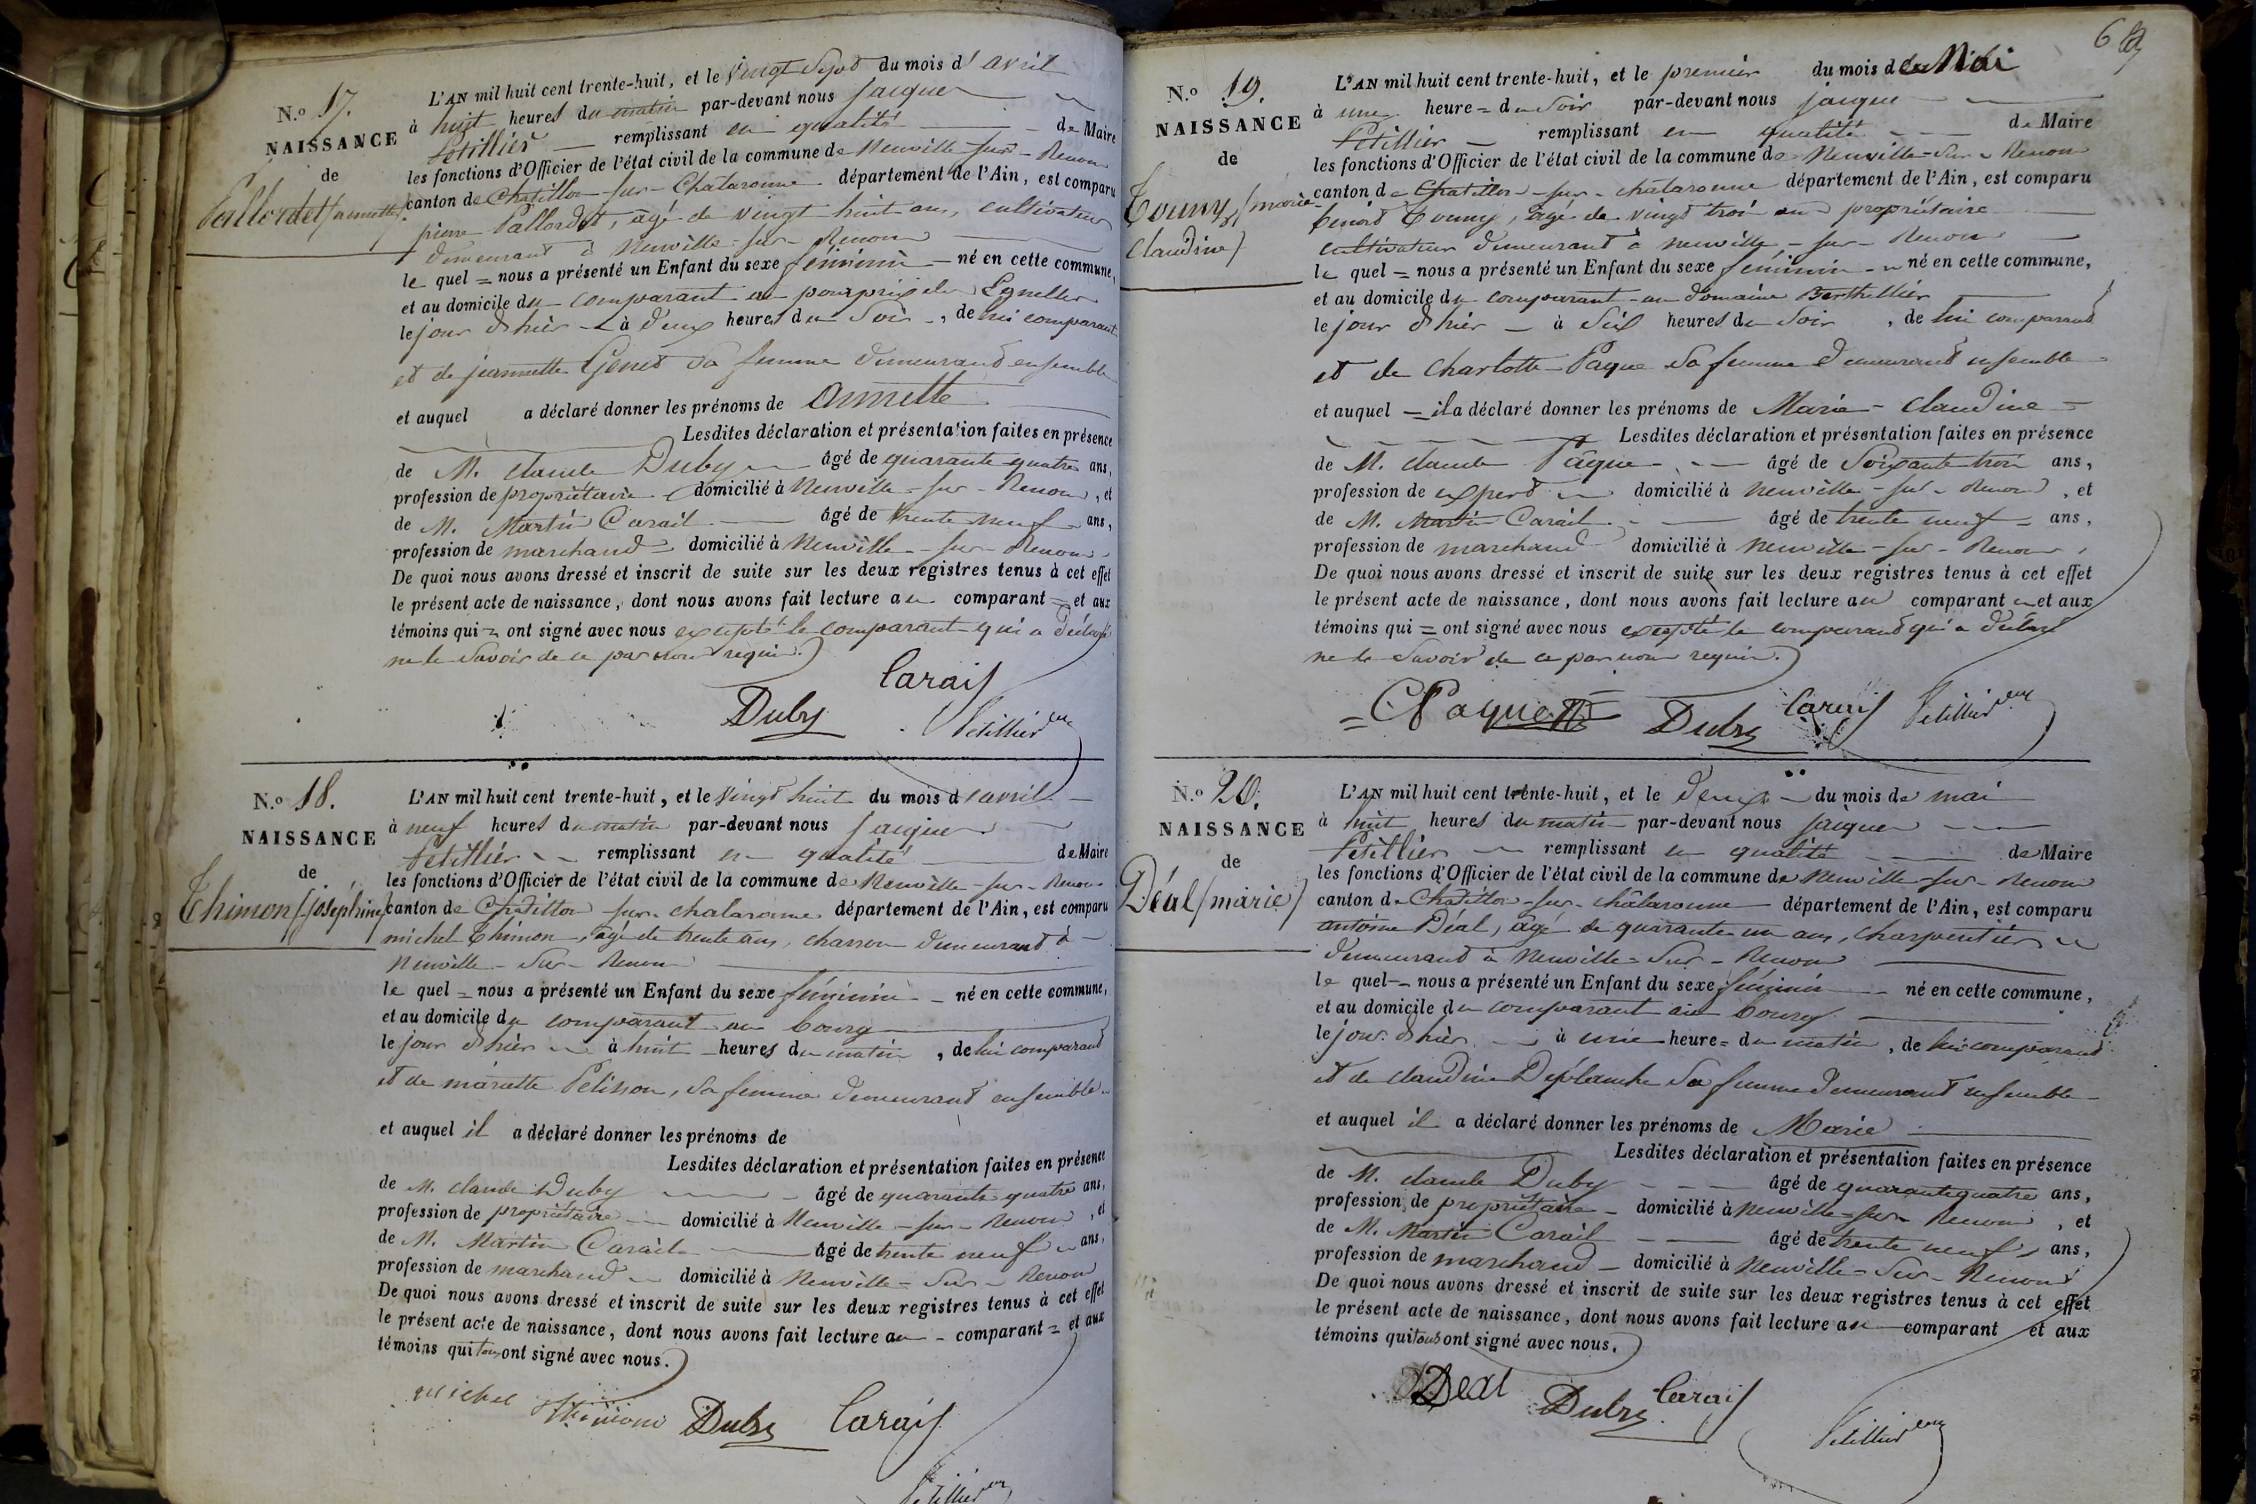 N.o 17.
NAISSANCE
de
Pallordet (annette)
L'AN mil huit cent trente-huit, et le vingt Sept du mois d'avril
à huit heures du matin par-devant nous jacques
Petillier remplissant en qualité de Maire
les fonctions d'Officier de l'état civil de la commune de Neuville-sur-Renom
canton de Chatillon-sur-Chalaronne département de l'Ain, est comparu
pierre Pallordet, âgé de vingt huit ans, cultivateur
demeurant à Neuville-sur-Renom
le quel = nous a présenté un Enfant du sexe féminin né en cette commune,
et au domicile du comparant au
le jour d'hier à deux heures du Soir, de lui comparant
et de jeannette Genet Sa femme demeurant ensemble
et auquel a déclaré donner les prénoms de Annette
Lesdites déclaration et présentation faites en présence
de M. claude Duby âgé de quarante quatre ans,
profession de propriétaire domicilié à Neuville-sur-Renom, et
de M. Martin Carait âgé de trente neuf ans,
profession de marchand domicilié à Neuville-sur-Renom
De quoi nous avons dressé et inscrit de suite sur les deux registres tenus à cet effet
le présent acte de naissance, dont nous avons fait lecture au comparant = et aux
témoins qui = ont signé avec nous excepté le comparant qui a déclaré
ne le Savoir de ce par nous requis.
Carait
Duby
Petillier
N.o 18.
NAISSANCE
de
Thimon (joséphine)
L'AN mil huit cent trente-huit, et le vingt huit du mois d'avril
à neuf heures du matin par-devant nous jacques
Petillier remplissant en qualité de Maire
les fonctions d'Officier de l'état civil de la commune de Neuville-sur-Renom
canton de Chatillon sur-chalaronne département de l'Ain, est comparu
michel Thimon, âgé de trente ans, charron demeurant à
Neuville-Sur-Renom
le quel = nous a présenté un Enfant du sexe féminin né en cette commune,
et au domicile du comparant au bourg
le jour d'hier à huit heures du matin, de lui comparant
et de mariette Pelisson, Sa femme demeurant ensemble
et auquel il a déclaré donner les prénoms de
Lesdites déclaration et présentation faites en présence
de M. claude Duby âgé de quarante quatre ans,
profession de propriétaire domicilié à Neuville-sur-Renom, et
de M. Martin Carait âgé de trente neuf ans,
profession de marchand domicilié à Neuville-Sur-Renom
De quoi nous avons dressé et inscrit de suite sur les deux registres tenus à cet effet
le présent acte de naissance, dont nous avons fait lecture au comparant = et aux
témoins qui tous ont signé avec nous.
michel Thimon Duby Carait
Petillier
N.o 19.
NAISSANCE
de
Touny (marie
claudine)
L'AN mil huit cent trente-huit, et le premier du mois de Mai
à une heure = du Soir par-devant nous jacques
Petillier remplissant en qualité de Maire
les fonctions d'Officier de l'état civil de la commune de Neuville-Sur-Renom
canton de Chatillon-sur-chalaronne département de l'Ain, est comparu
benoit Touny, âgé de vingt trois ans propriétaire
cultivateur demeurant à neuville-sur-Renom
le quel = nous a présenté un Enfant du sexe féminin né en cette commune,
et au domicile du comparant au domaine Berthellier
le jour d'hier à Six heures du Soir, de lui comparant
et de Charlotte Paque Sa femme demeurant ensemble
et auquel il a déclaré donner les prénoms de Marie-Claudine
Lesdites déclaration et présentation faites en présence
de M. claude Pâque âgé de Soixante trois ans,
profession de expert domicilié à Neuville-sur-Renom, et
de M. Martin Carait âgé de trente neuf ans,
profession de marchand domicilié à Neuville-sur-Renom,
De quoi nous avons dressé et inscrit de suite sur les deux registres tenus à cet effet
le présent acte de naissance, dont nous avons fait lecture au comparant et aux
témoins qui = ont signé avec nous excepté le comparant qui a déclaré
ne le Savoir de ce par nous requis.
Duby Carait Petillier
N.o 20.
NAISSANCE
de
Déal (marie)
L'AN mil huit cent trente-huit, et le deux du mois de mai
à huit heures du matin par-devant nous jacques
Petillier remplissant en qualité de Maire
les fonctions d'Officier de l'état civil de la commune de Neuville-sur-Renom
canton de Chatillon-sur-chalaronne département de l'Ain, est comparu
antoine Déal, âgé de quarante un ans, charpentier
demeurant à Neuville-Sur-Renom
le quel nous a présenté un Enfant du sexe féminin né en cette commune,
et au domicile du comparant au bourg
le jour d'hier à une heure = du matin, de lui comparant
et de claudine Deplanche Sa femme demeurant ensemble
et auquel il a déclaré donner les prénoms de Marie
Lesdites déclaration et présentation faites en présence
de M. claude Duby âgé de quarante quatre ans,
profession de propriétaire domicilié à Neuville-sur-Renom, et
de M. Martin Carait âgé de trente neuf ans,
profession de marchand domicilié à Neuville-Sur-Renom
De quoi nous avons dressé et inscrit de suite sur les deux registres tenus à cet effet
le présent acte de naissance, dont nous avons fait lecture au comparant et aux
témoins qui tous ont signé avec nous.
Deal Duby Carait
Petillier